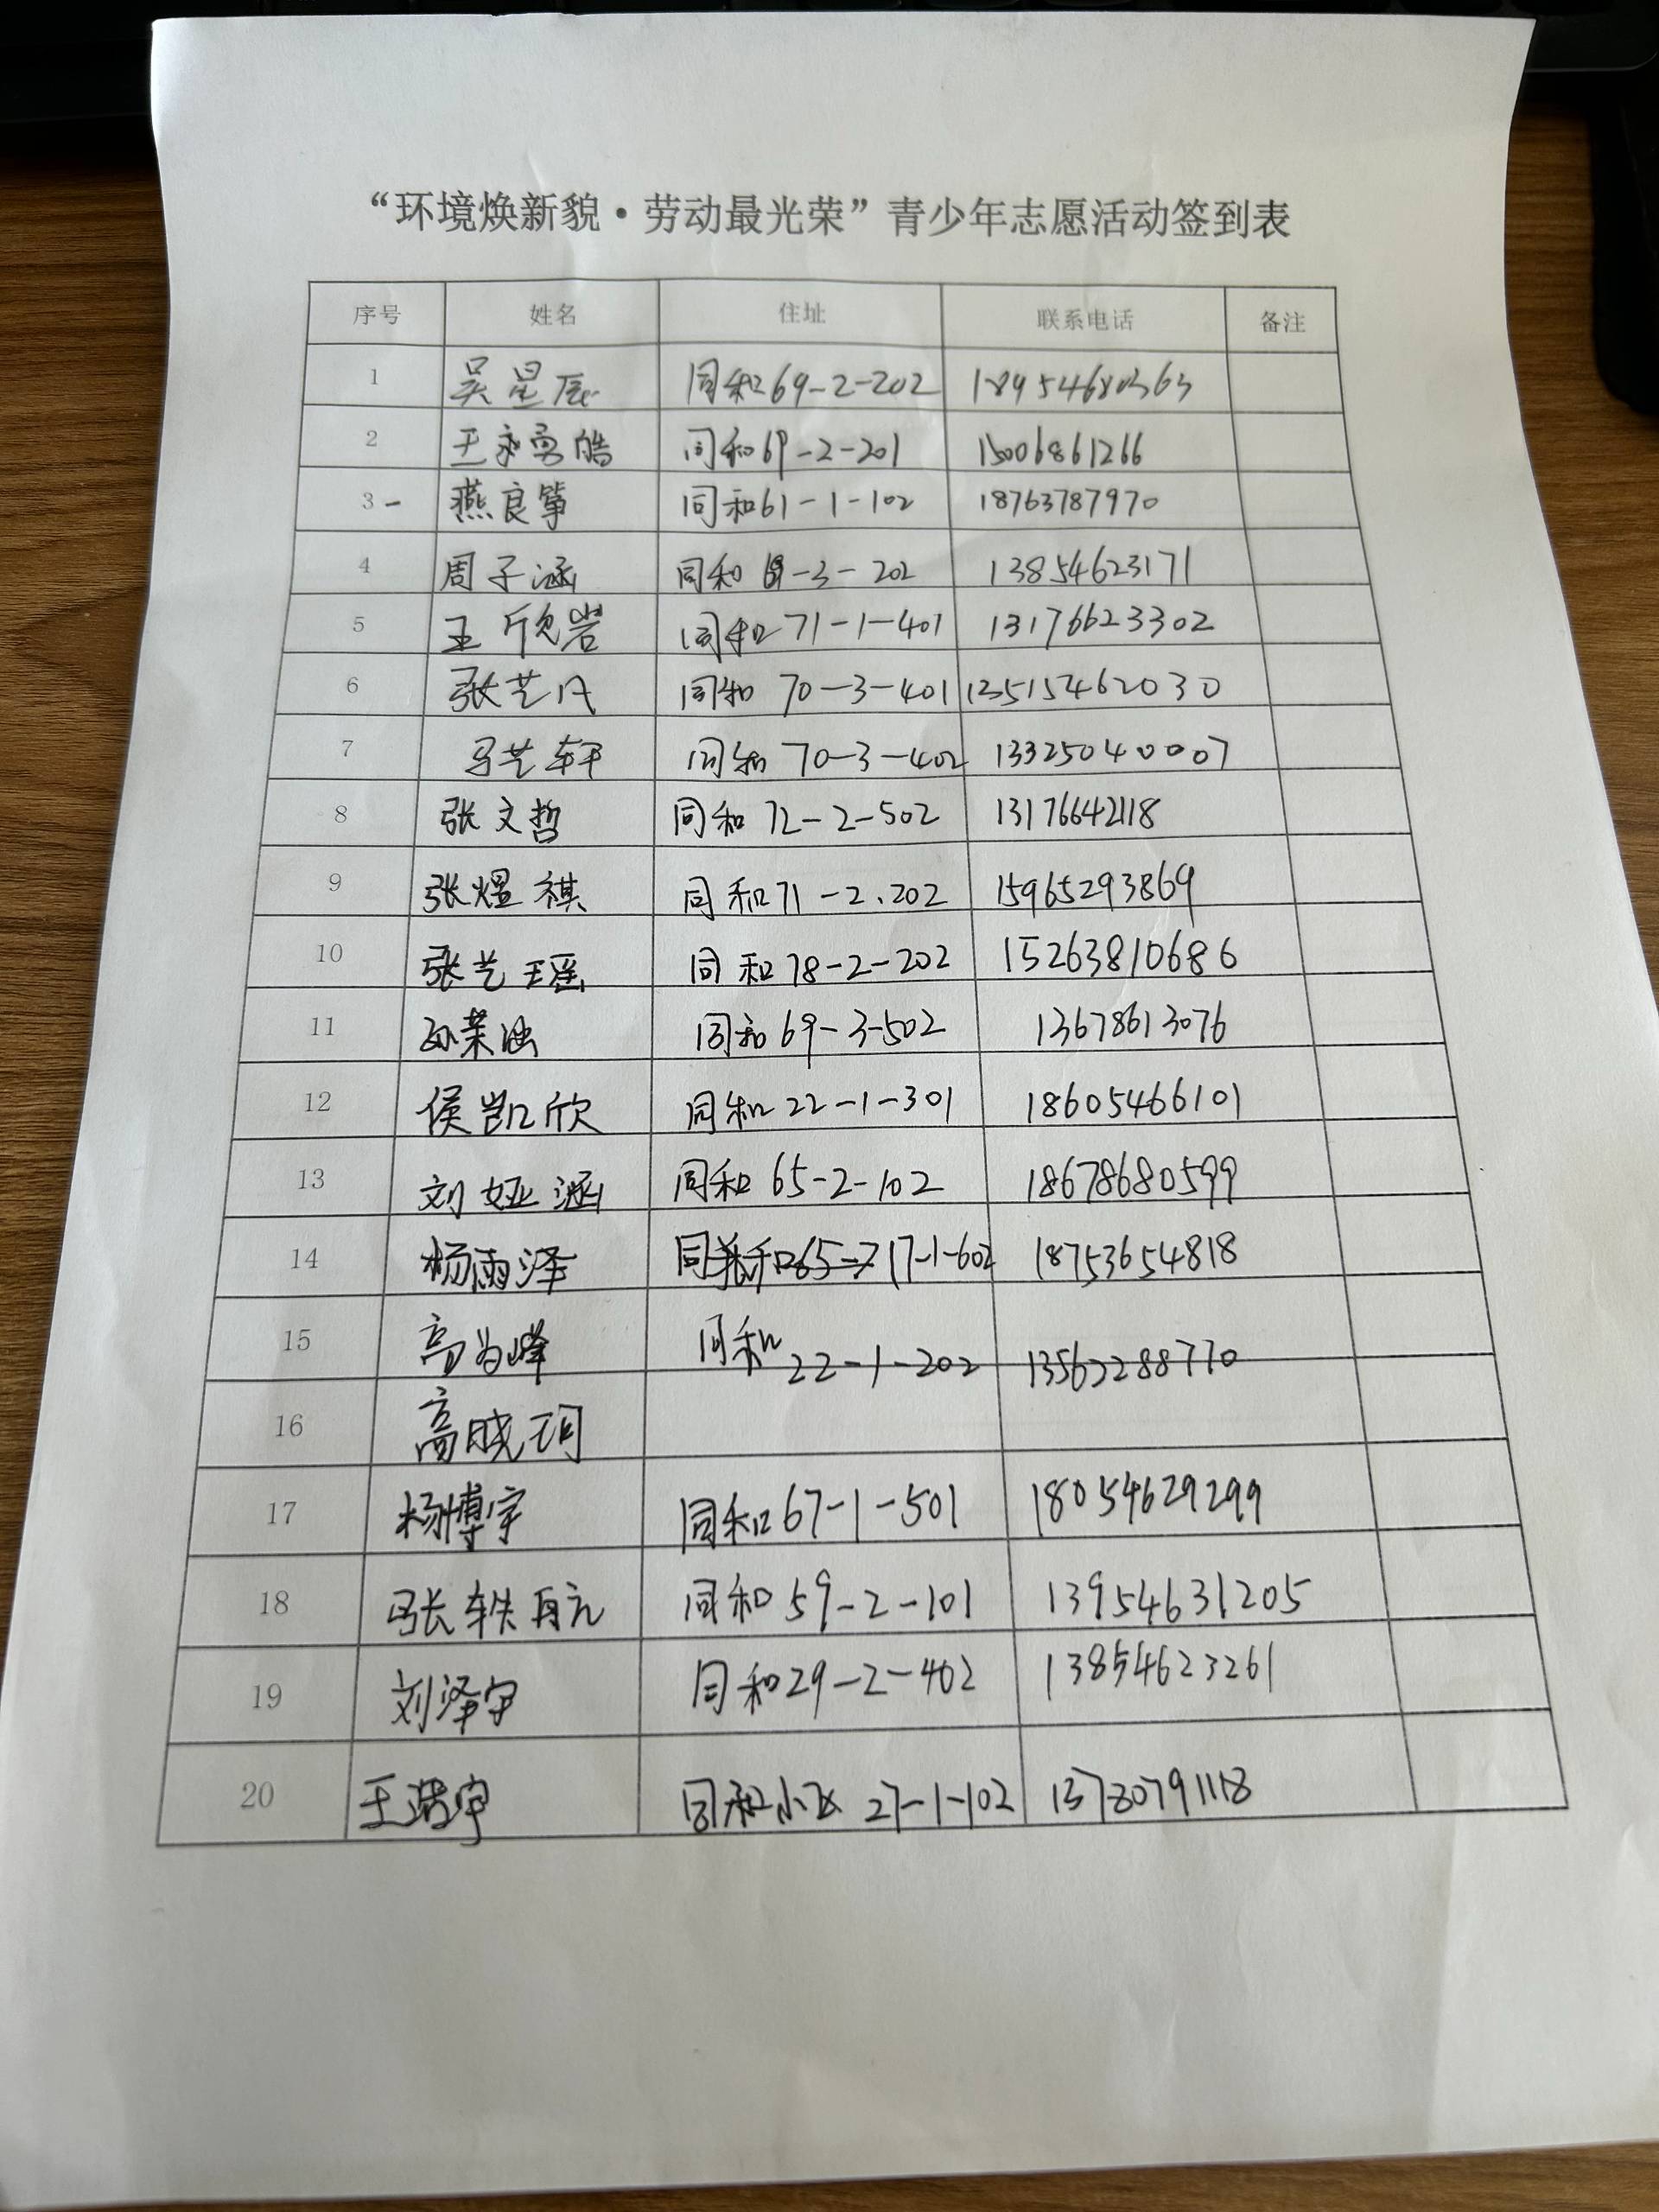 “环境焕新貌·劳动最光荣”青少年志愿活动签到表
序号 姓名 住址 联系电话 备注
1 吴星辰 同和69-2-202 18954680363
2 王永勇皓 同和69-2-201 15006861266
3- 燕良筝 同和61-1-102 18763787970
4 周子涵 同和 -3-202 13854623171
5 王欣岩 同和71-1-401 13176623302
6 张艺凡 同和 70-3-401
7 马艺轩 同和 70-3-402 13325040007
8 张文哲 同和 72-2-502 13176642118
9 张煜祺 同和71-2.202 15965293869
10 张艺瑶 同和78-2-202 15263810686
11 同和69-3-502 13678613076
12 侯凯欣 同和22-1-301 18605466101
13 刘娅涵 同和 65-2-102 18678680599
14 杨雨泽 17-1-602 18753654818
15 高为峰 同和22-1-202 13562288770
16 高晓玥
17 杨博宇 同和67-1-501 18054629299
18 张轶 同和59-2-101 13954631205
19 刘泽宇 同和29-2-402 13854623261
20 王浩宇 同和小区 27-1-102